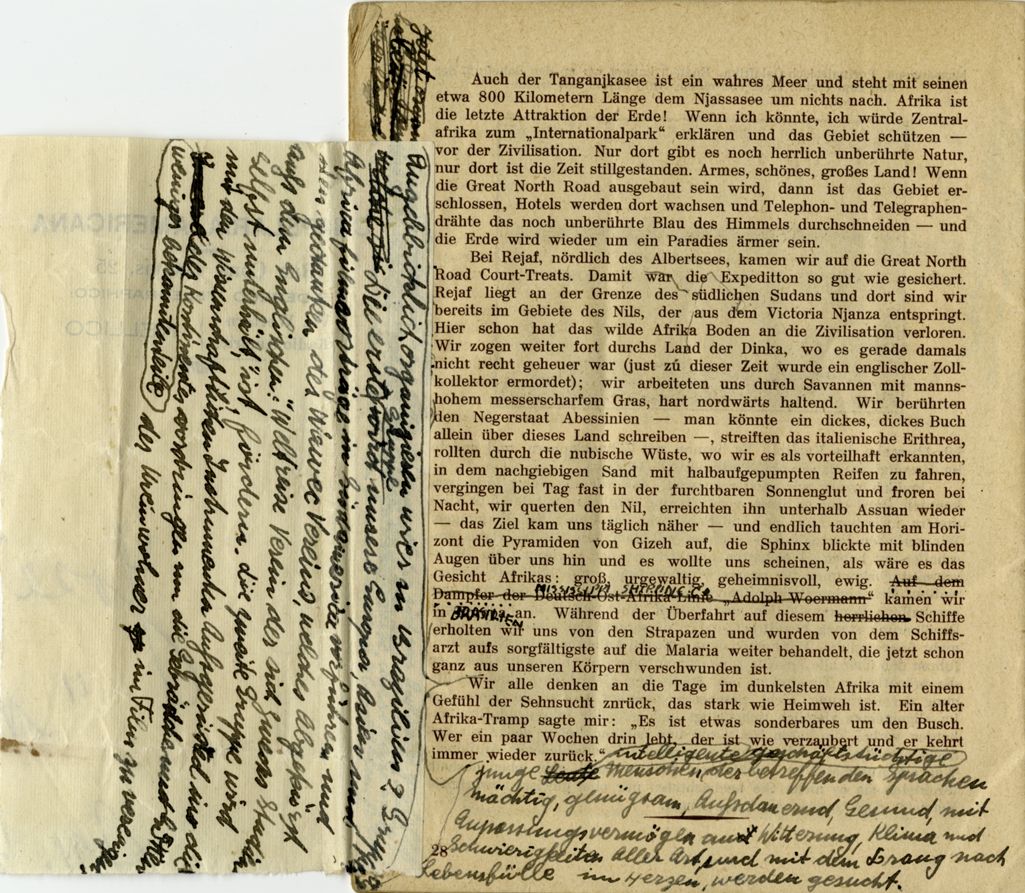 Auch der Tanganjkasee ist ein wahres Meer und steht mit seinen
etwa 800 Kilometern Länge dem Njassasee um nichts nach. Afrika ist
die letzte Attraktion der Erde! Wenn ich könnte, ich würde Zentral-
afrika zum „Internationalpark“ erklären und das Gebiet schützen —
vor der Zivilisation. Nur dort gibt es noch herrlich unberührte Natur,
nur dort ist die Zeit stillgestanden. Armes, schönes, großes Land! Wenn
die Great North Road ausgebaut sein wird, dann ist das Gebiet er-
schlossen, Hotels werden dort wachsen und Telephon- und Telegraphen-
drähte das noch unberührte Blau des Himmels durchschneiden — und
die Erde wird wieder um ein Paradies ärmer sein.
Bei Rejaf, nördlich des Albertsees, kamen wir auf die Great North
Road Court-Treats. Damit war die Expeditton so gut wie gesichert.
Rejaf liegt an der Grenze des südlichen Sudans und dort sind wir
bereits im Gebiete des Nils, der aus dem Victoria Njanza entspringt.
Hier schon hat das wilde Afrika Boden an die Zivilisation verloren.
Wir zogen weiter fort durchs Land der Dinka, wo es gerade damals
nicht recht geheuer war (just zú dieser Zeit wurde ein englischer Zoll-
kollektor ermordet); wir arbeiteten uns durch Savannen mit manns-
hohem messerscharfem Gras, hart nordwärts haltend. Wir berührten
den Negerstaat Abessinien — man könnte ein dickes, dickes Buch
allein über dieses Land schreiben —, streiften das italienische Erithrea,
rollten durch die nubische Wüste, wo wir es als vorteilhaft erkannten,
in dem nachgiebigen Sand mit halbaufgepumpten Reifen zu fahren,
vergingen bei Tag fast in der furchtbaren Sonnenglut und froren bei
Nacht, wir querten den Nil, erreichten ihn unterhalb Assuan wieder
— das Ziel kam uns täglich näher — und endlich tauchten am Hori-
zont die Pyramiden von Gizeh auf, die Sphinx blickte mit blinden
Augen über uns hin und es wollte uns scheinen, als wäre es das
Gesicht Afrikas: groß, urgewaltig, geheimnisvoll, ewig. Auf dem
MISSISSIPPI SHIPPING Co
Dampfer der Deutsch-Ost-Afrika-Linie „Adolph Woermann“ kamen wir
in BRASILIEN an. Während der Überfahrt auf diesem herrlichen Schiffe
erholten wir uns von den Strapazen und wurden von dem Schiffs-
arzt aufs sorgfältigste auf die Malaria weiter behandelt, die jetzt schon
ganz aus unseren Körpern verschwunden ist.
Wir alle denken an die Tage im dunkelsten Afrika mit einem
Gefühl der Sehnsucht znrück, das stark wie Heimweh ist. Ein alter
Afrika-Tramp sagte mir: „Es ist etwas sonderbares um den Busch.
Wer ein paar Wochen drin lebt, der ist wie verzaubert und er kehrt
immer wieder zurück.“ intelligente geschäftstüchtige
junge Leute Menschen, der betreffenden Sprachen
mächtig, genügsam, Aufsdauernd, Gesund, mit
Anpassungsvermögen an Witterung, Klima und
Schwierigkeiten aller Art, und mit dem Drang nach
28
Lebensfülle im Herzen, werden gesucht.
Augenblicklich organisieren wir in Brasilien 3
Gruppe
Die erste wird unsere Europa, Asien und
Afrika filmvorträge in Südamerika vorführen und
den gedanken des Wiewec Vereins, welches Abgekürzt
aufs dem Englischen: "Weltreise Verein der sich Zwecks Studien
selbst unterhält", ist fördern. die zweite Gruppe wird
mit den Wissenschaftlichen Instrumenten Aufsgerüstet ins
des Kontinents, eindringen um die Gebräuche und
weniger bekannten der Ureinwohner im Film zu